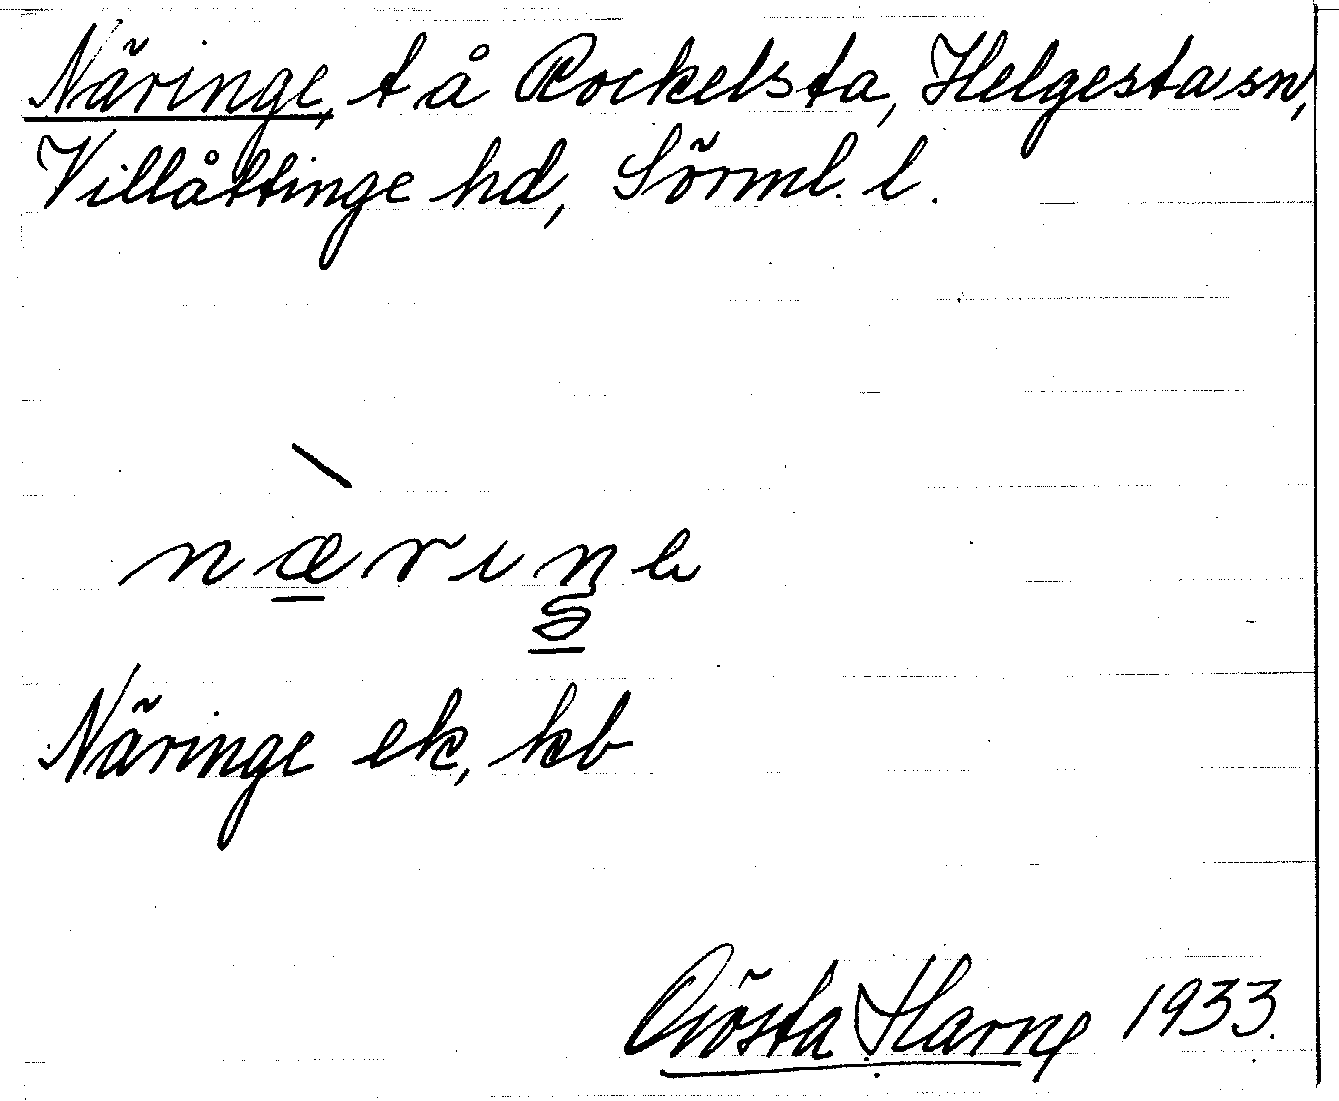 Näringe, t å Rockelsta, Helgesta sn,
Villåttinge hd, Sörml. l.
næriŋe
Näringe ek, kb
Gösta Harne 1933.